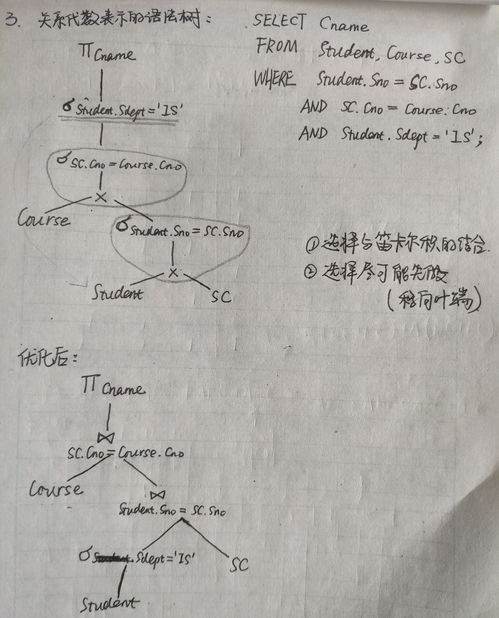 3. 关系代数表示的语法树:
SELECT Cname
FROM Student, Course, SC
WHERE Student.Sno = SC.Sno
AND SC.Cno = Course.Cno
AND Student.Sdept = 'IS';
Π Cname
σ Student.Sdept = 'IS'
σ SC.Cno = Course.Cno
×
Course
σ Student.Sno = SC.Sno
×
Student
SC
① 选择与笛卡尔积的结合.
② 选择尽可能先做
(移向叶端)
优化后:
Π Cname
⋈
SC.Cno = Course.Cno
Course
⋈
Student.Sno = SC.Sno
σ .Sdept = 'IS'
SC
Student